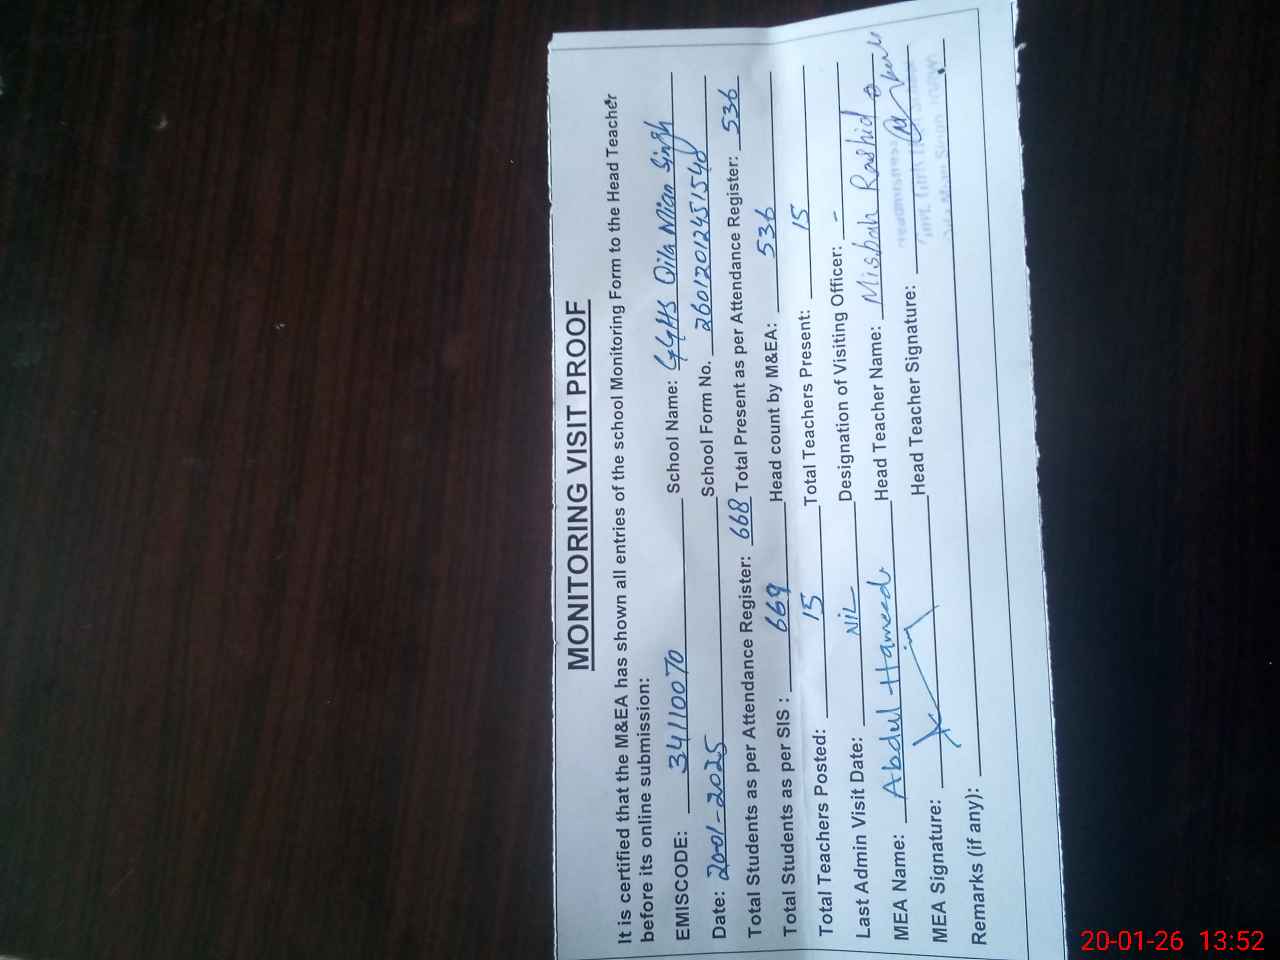 MONITORING VISIT PROOF
It is certified that the M&EA has shown all entries of the school Monitoring Form to the Head Teacher
before its online submission:
EMISCODE: 34110070 School Name: GGHS Qila Mian Singh
Date: 20-01-2025 School Form No. 26012012451540
Total Students as per Attendance Register: 668 Total Present as per Attendance Register: 536
Total Students as per SIS : 669 Head count by M&EA: 536
Total Teachers Posted: 15 Total Teachers Present: 15
Last Admin Visit Date: NIL Designation of Visiting Officer: -
MEA Name: Abdul Hameed Head Teacher Name: Misbah Rashid
MEA Signature: Head Teacher Signature:
Remarks (if any):
20-01-26 13:52